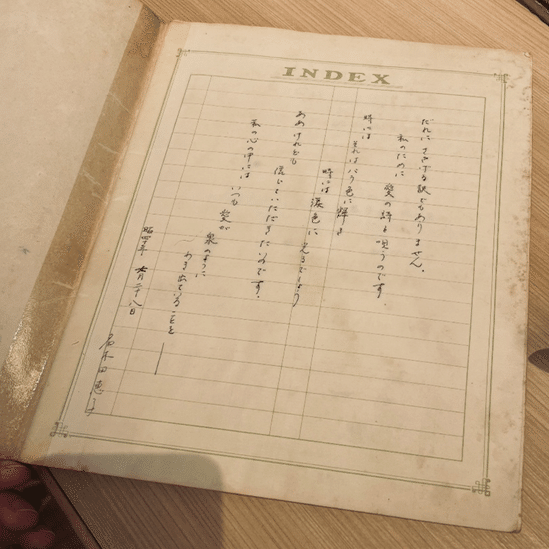 INDEX
だれに ささげる訳でもありません。
私のために 愛の詩を唄うのです。
時には それはバラ色に輝き
時には 涙色に 見えるでしょう
ああ けれども 信じていただきたいのです。
私の心の中には いつも愛が
泉のように
わきあ いることを
昭四十年 月二十八日